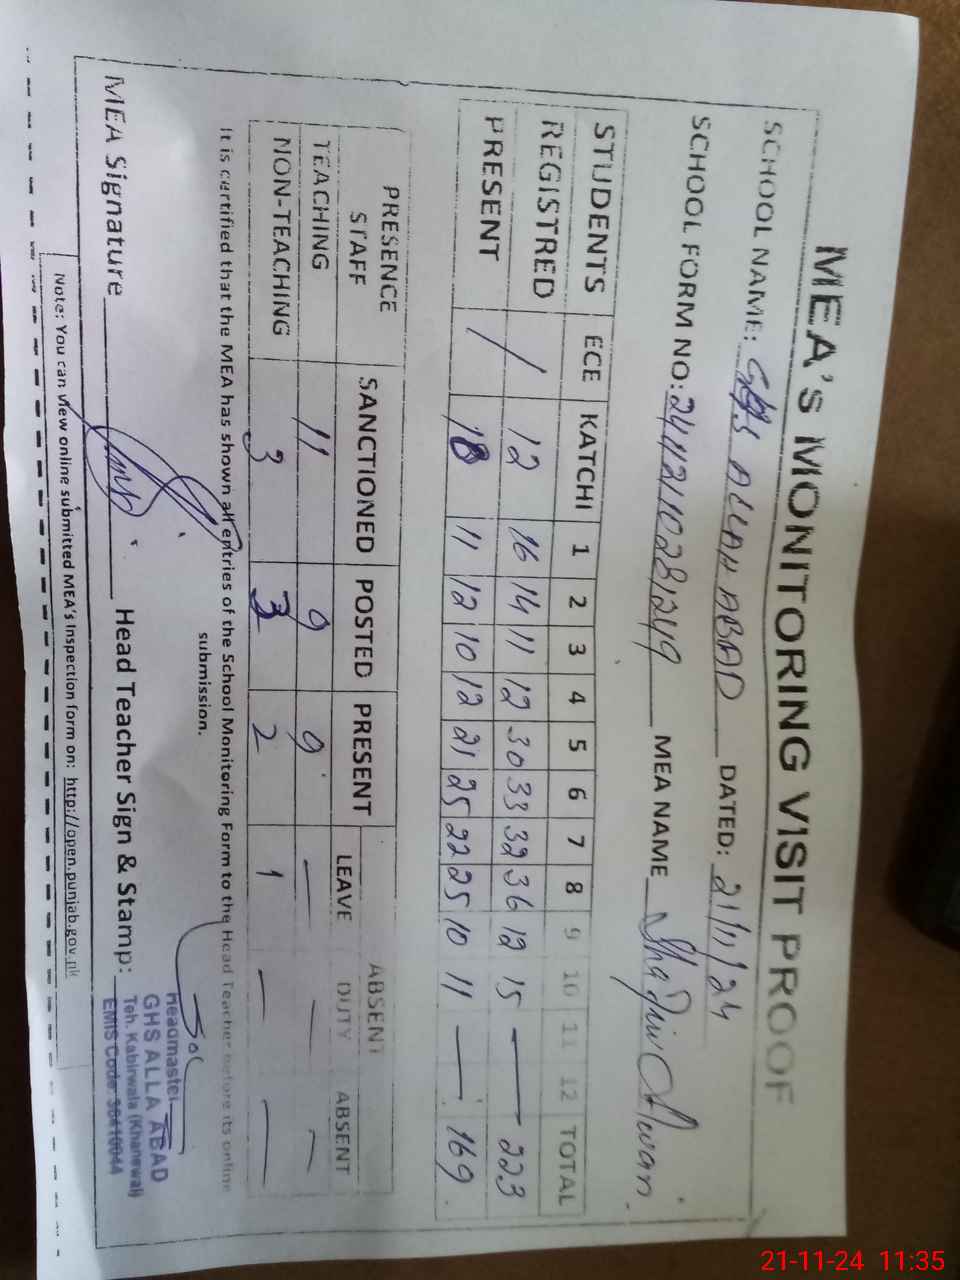 MEA'S MONITORING VISIT PROOF
SCHOOL NAME: GHS ALLAH ABAD DATED: 21/11/24
SCHOOL FORM NO: MEA NAME
STUDENTS ECE KATCHI 1 2 3 4 5 6 7 8 9 10 11 12 TOTAL
REGISTRED / 12 16 14 11 12 30 33 32 36 12 15 — 223
PRESENT / 10 11 12 10 12 21 25 22 25 10 11 — 169
PRESENCE STAFF SANCTIONED POSTED PRESENT ABSENT
LEAVE DUTY ABSENT
TEACHING 11 9 9 — — —
NON-TEACHING 3 3 2 1 — —
It is certified that the MEA has shown all entries of the School Monitoring Form to the Head Teacher before its online
submission.
MEA Signature Head Teacher Sign & Stamp:
Headmaster
GHS ALLA ABAD
Teh. Kabirwala (Khanewal)
EMIS Code: 36410044
Note: You can view online submitted MEA's Inspection form on: http://open.punjab.gov.pk
21-11-24 11:35